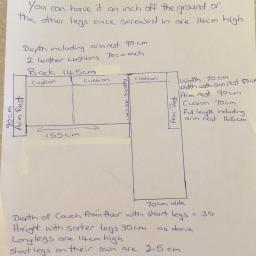 You can have it an inch off the ground or
the other legs once screwed in are 14cm high
Depth including arm rest 90 cm
2 leather cushions 70cm each
Back 145cm
Cushion
Cushion
Cushion
Width 70 cm
Width with arm rest 90cm
Arm rest 90cm
Cusion 70cm
Full length including
arm rest 165cm
90cm
Arm Rest
Arm Rest
155cm
70cm wide
Depth of Couch from floor with short legs = 35
Height with sorter legs 30cm as above
Long legs are 14cm high
Short legs on their own are 2.5 cm